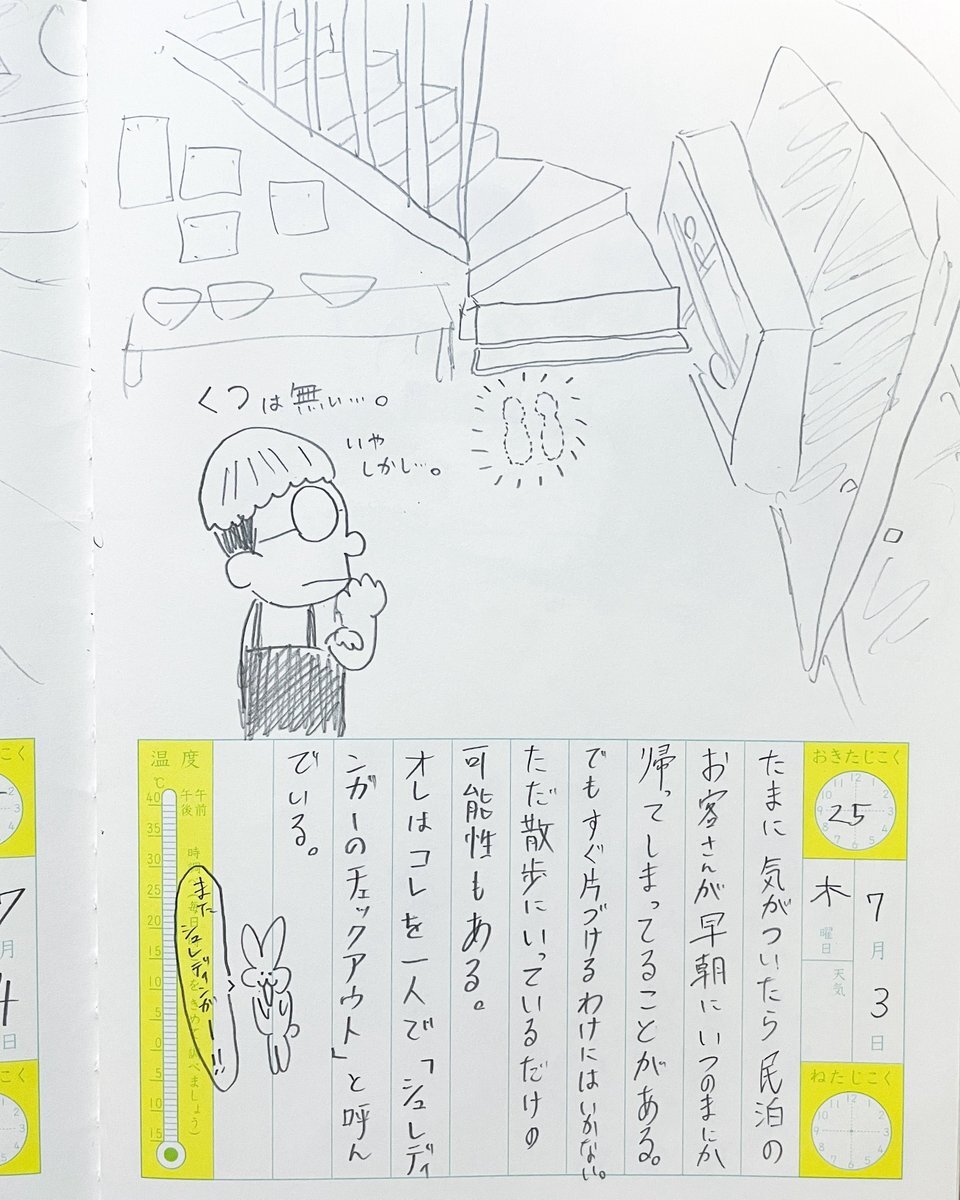 くつは無い…。
いや
しかし…。
おきたじこく
25
7月3日
木曜日
天気
ねたじこく
たまに気がついたら民泊の
お客さんが早朝にいつのまにか
帰ってしまってることがある。
でもすぐ片づけるわけにはいかない。
ただ散歩にいっているだけの
可能性もある。
オレはコレを一人で「シュレディ
ンガーのチェックアウト」と呼ん
でいる。
また
シュレディンガー!!
温度
℃
午前
午後
40
35
30
25
20
15
10
5
0
5
10
15